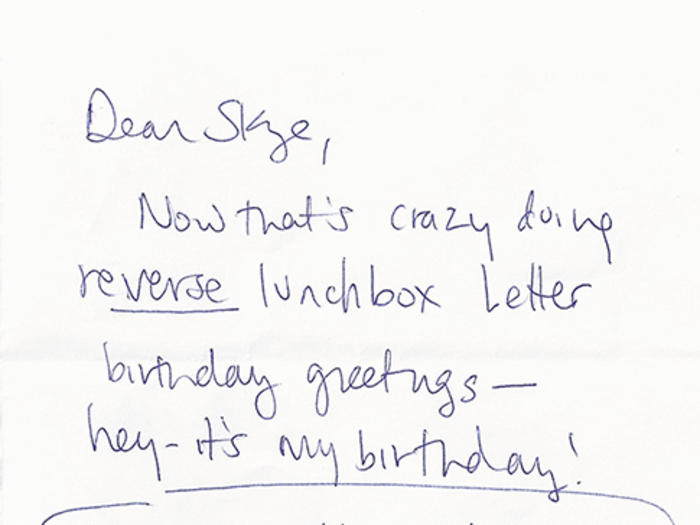 Dear Skye,
Now that's crazy doing
reverse lunchbox letter
birthday greetings —
hey - it's my birthday!